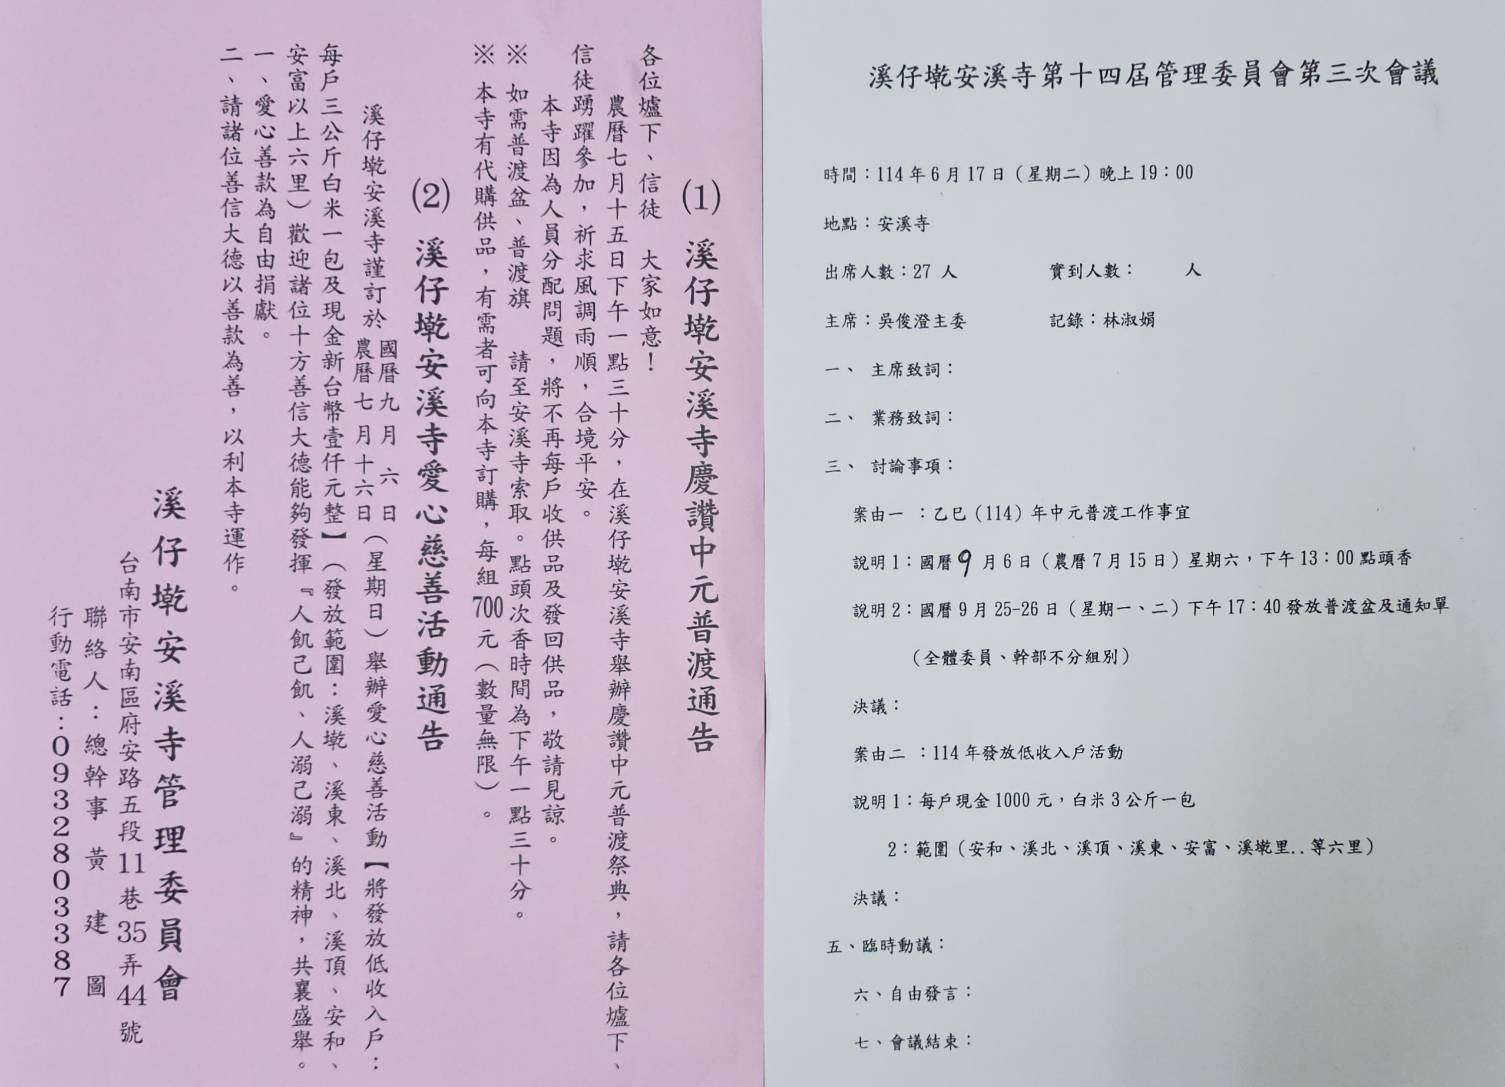 ⑴ 溪仔墘安溪寺慶讚中元普渡通告
各位爐下、信徒 大家如意！
農曆七月十五日下午一點三十分，在溪仔墘安溪寺舉辦慶讚中元普渡祭典，請各位爐下、
信徒踴躍參加，祈求風調雨順，合境平安。
本寺因為人員分配問題，將不再每戶收供品及發回供品，敬請見諒。
※ 如需普渡盆、普渡旗 請至安溪寺索取。點頭次香時間為下午一點三十分。
※ 本寺有代購供品，有需者可向本寺訂購，每組700元（數量無限）。
⑵ 溪仔墘安溪寺愛心慈善活動通告
溪仔墘安溪寺謹訂於 國曆九月 六 日 農曆七月十六日（星期日）舉辦愛心慈善活動【將發放低收入戶：
每戶三公斤白米一包及現金新台幣壹仟元整】（發放範圍：溪墘、溪東、溪北、溪頂、安和、
安富以上六里）歡迎諸位十方善信大德能夠發揮『人飢己飢、人溺己溺』的精神，共襄盛舉。
一、愛心善款為自由捐獻。
二、請諸位善信大德以善款為善，以利本寺運作。
溪仔墘安溪寺管理委員會
台南市安南區府安路五段11巷35弄44號
聯絡人：總幹事 黃 建 圖
行動電話：0932803387
溪仔墘安溪寺第十四屆管理委員會第三次會議
時間：114年6月17日（星期二）晚上19：00
地點：安溪寺
出席人數：27 人 實到人數： 人
主席：吳俊澄主委 記錄：林淑娟
一、 主席致詞：
二、 業務致詞：
三、 討論事項：
案由一 ：乙巳（114）年中元普渡工作事宜
說明1：國曆9月6日（農曆7月15日）星期六，下午13：00點頭香
說明2：國曆9月25-26日（星期一、二）下午17：40發放普渡盆及通知單
（全體委員、幹部不分組別）
決議：
案由二 ：114年發放低收入戶活動
說明1：每戶現金1000元，白米3公斤一包
2：範圍（安和、溪北、溪頂、溪東、安富、溪墘里..等六里）
決議：
五、臨時動議：
六、自由發言：
七、會議結束：